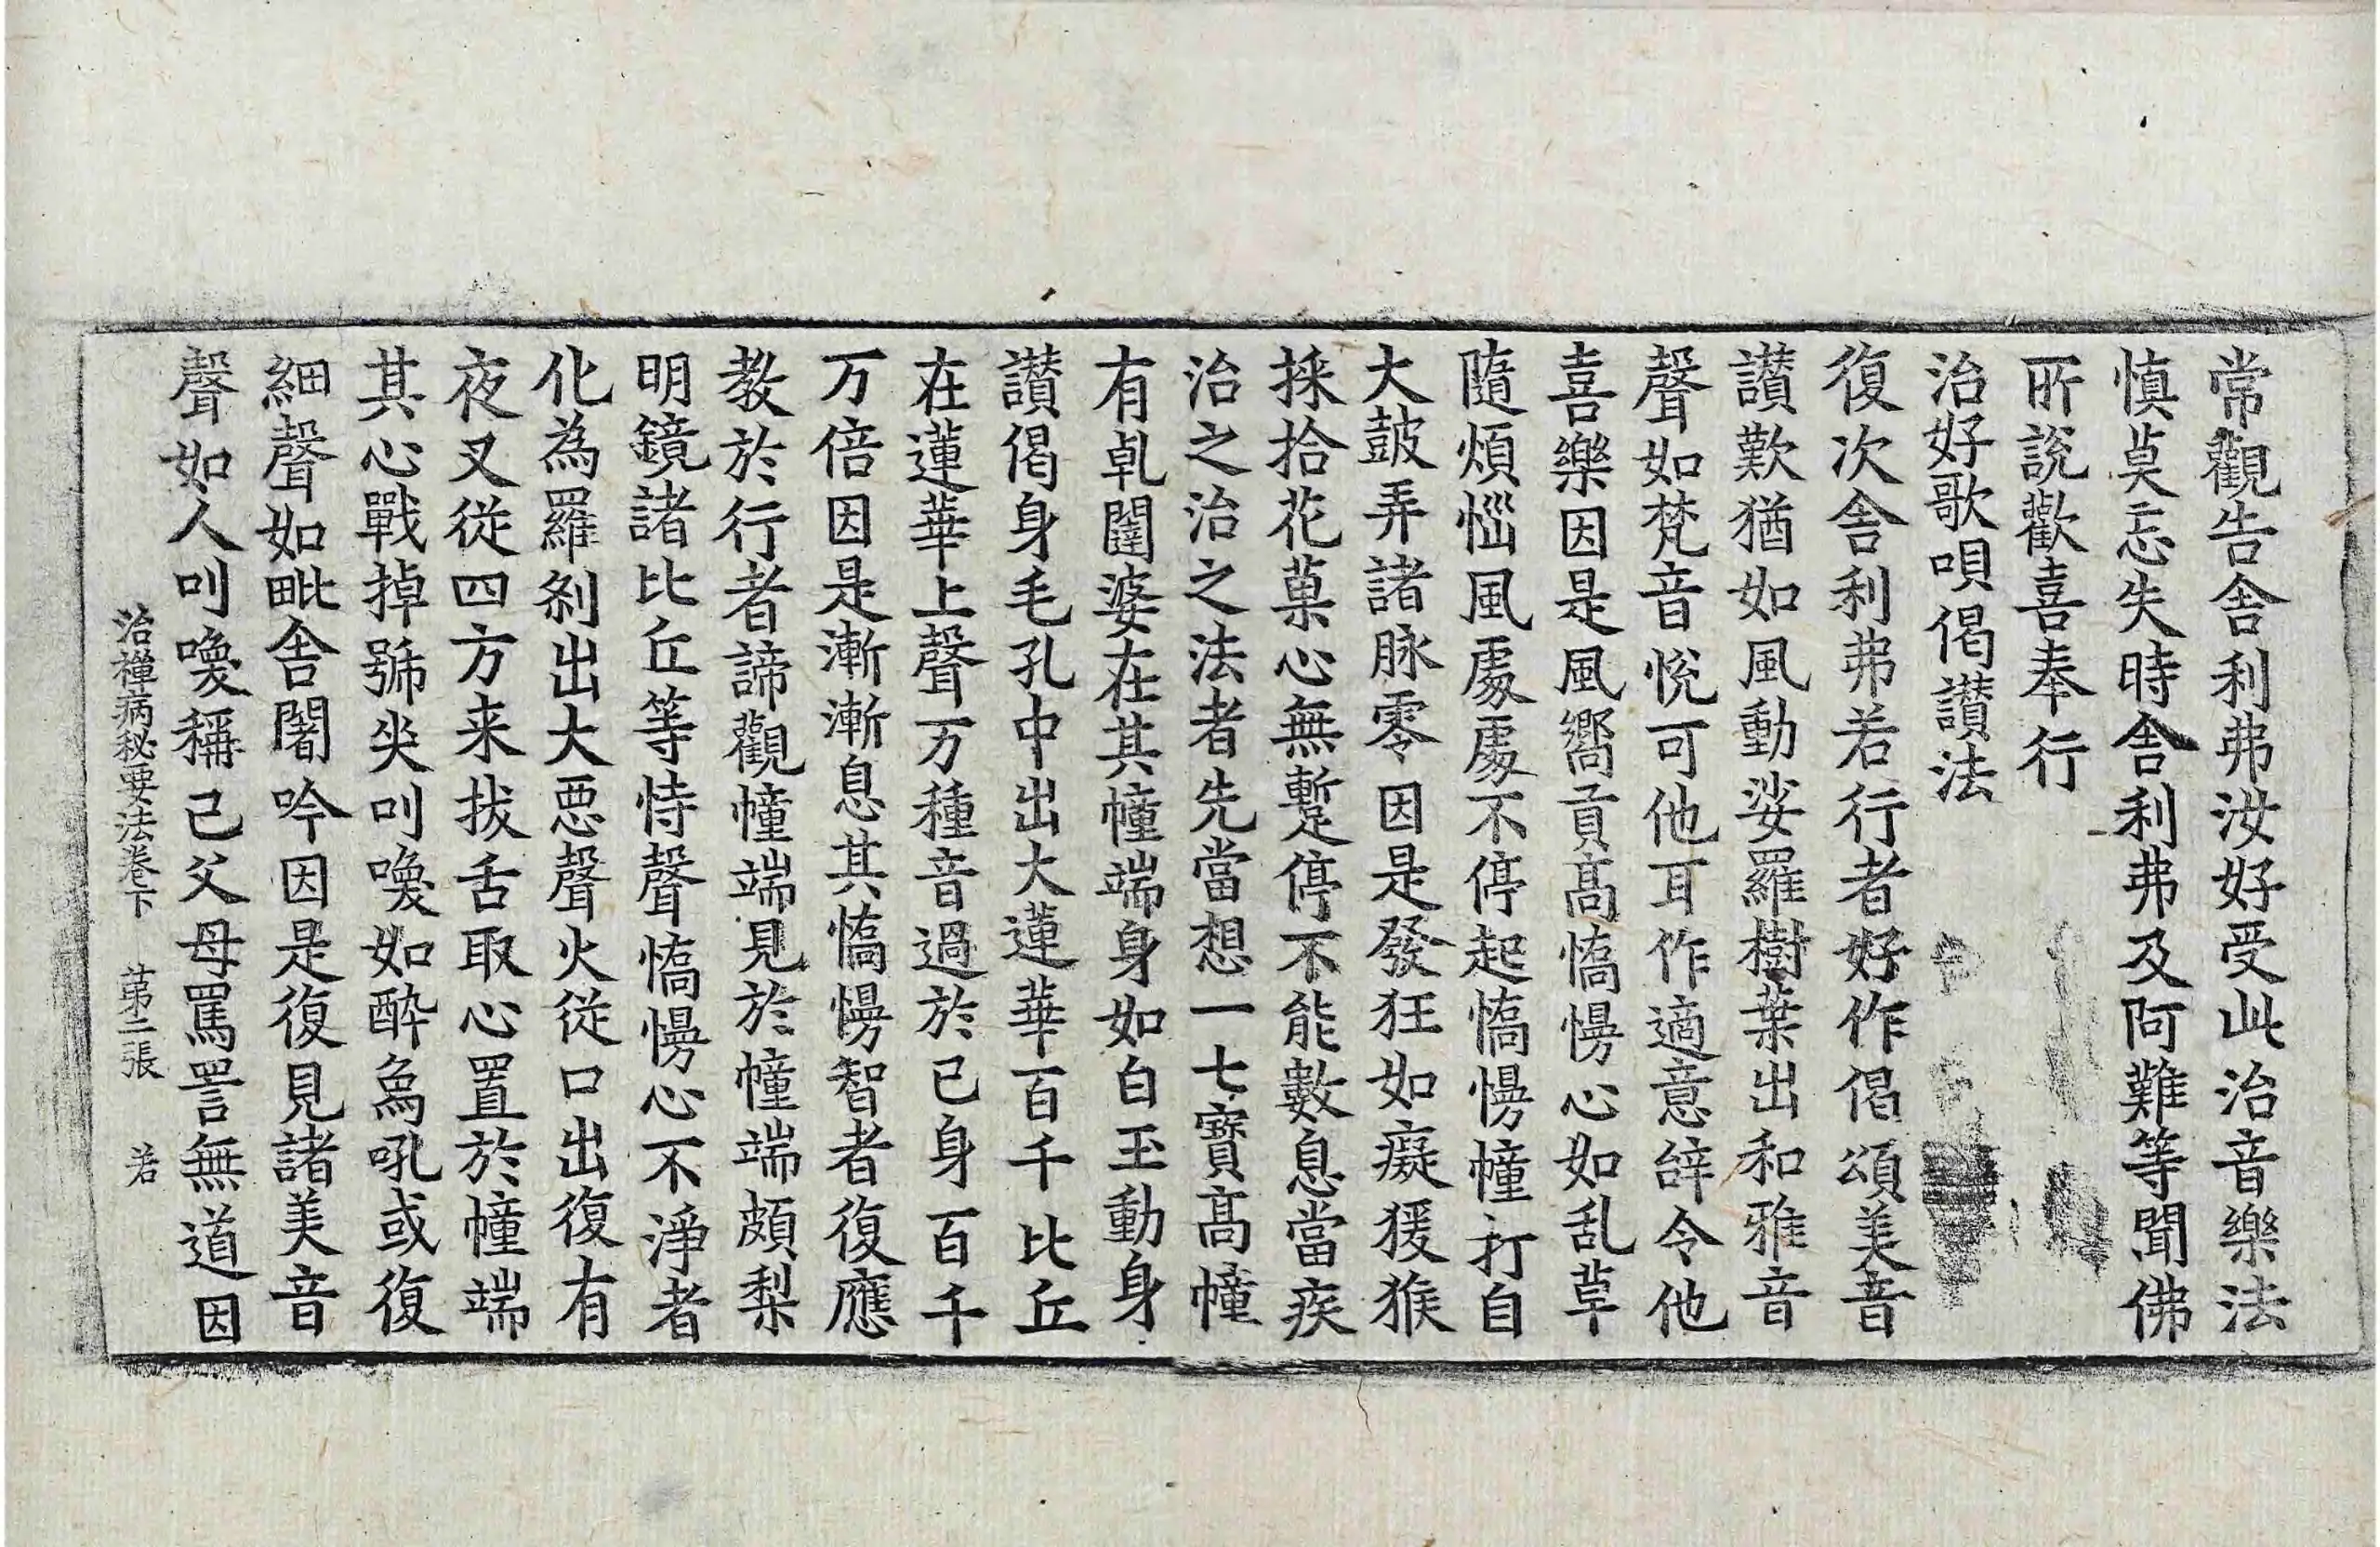 常觀告舍利弗汝好受此治音樂法
慎莫忘失時舍利弗及阿難等聞佛
所說歡喜奉行
治好歌唄偈讃法
復次舍利弗若行者好作偈頌美音
讃歎猶如風動娑羅樹葉出和雅音
聲如梵音恱可他耳作適意辝令他
喜樂因是風嚮貢髙憍慢心如乱草
隨煩惱風處處不停起憍慢幢打自
大皷弄諸脉零因是發狂如癡猨猴
採拾花菓心無暫停不能數息當疾
治之治之法者先當想一七寶髙幢
有乹闥婆在其幢端身如白玉動身
讃偈身毛孔中出大蓮華百千比丘
在蓮華上聲万種音過於己身百千
万倍因是漸漸息其憍慢智者復應
教於行者諦觀幢端見於幢端頗梨
明鏡諸比丘等恃聲憍慢心不淨者
化為羅刹出大惡聲火從口出復有
夜叉從四方来拔舌取心置於幢端
其心戰掉號哭叫喚如醉象吼或復
細聲如毗舍闍吟因是復見諸美音
聲如人叫喚稱己父母罵詈無道因
治禪病秘要法卷下　苐二張　若